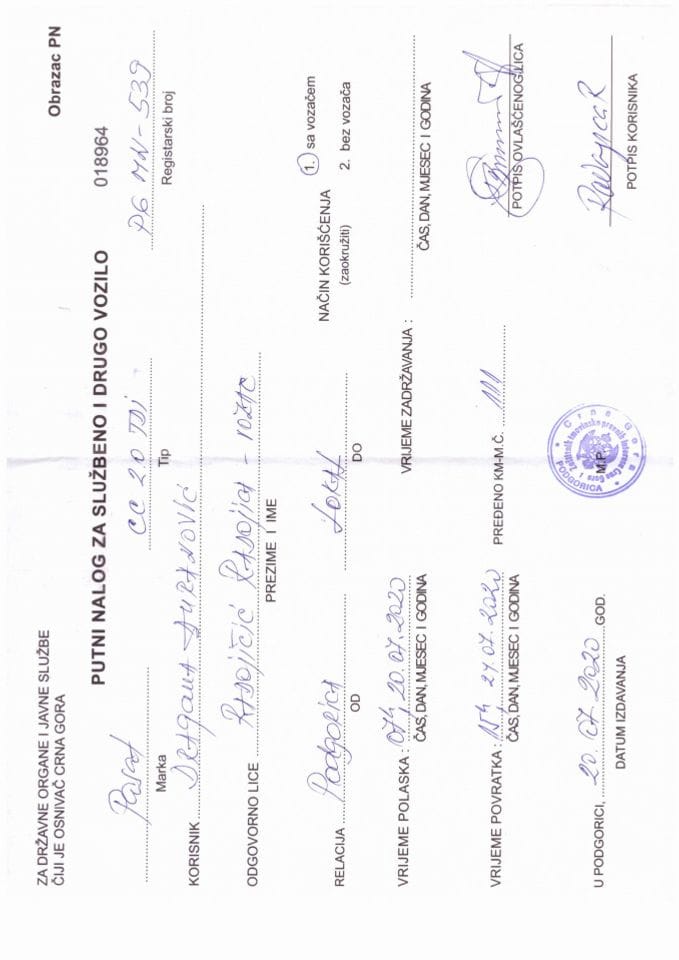 ZA DRŽAVNE ORGANE I JAVNE SLUŽBE
ČIJI JE OSNIVAČ CRNA GORA
Obrazac PN
PUTNI NALOG ZA SLUŽBENO I DRUGO VOZILO 018964
Pasat CC 2.0 TDI PG MN-539
Marka Tip Registarski broj
KORISNIK Dragana Đuranović
ODGOVORNO LICE Radojičić Radojica - vozač
PREZIME I IME
NAČIN KORIŠĆENJA 1. sa vozačem
(zaokružiti) 2. bez vozača
RELACIJA Podgorica Lokal
OD DO
VRIJEME POLASKA : 07h, 20.07.2020 VRIJEME ZADRŽAVANJA :
ČAS, DAN, MJESEC I GODINA ČAS, DAN, MJESEC I GODINA
VRIJEME POVRATKA : 15h, 27.07.2020 PREĐENO KM-M.Č. 111
ČAS, DAN, MJESEC I GODINA POTPIS OVLAŠĆENOG LICA
U PODGORICI, 20.07.2020 GOD.
DATUM IZDAVANJA M.P. POTPIS KORISNIKA
Crna Gora
Zaštitnik imovinsko pravnih interesa Crne Gore
PODGORICA
1